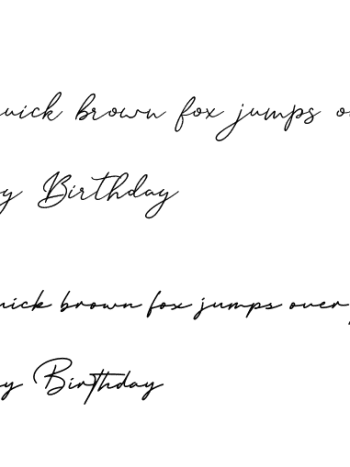 uick brown fox jumps o
y Birthday
uick brown fox jumps over
y Birthday